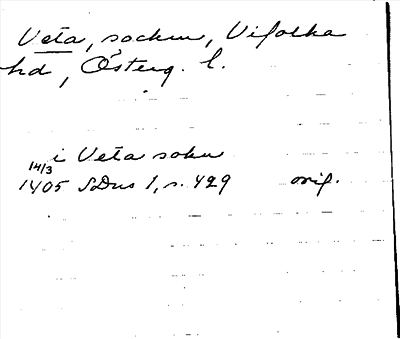 Veta, socken, Vifolka
hd, Österg. l.
i Veta sokn
14/3
1405 SDns 1, s. 429 orig.